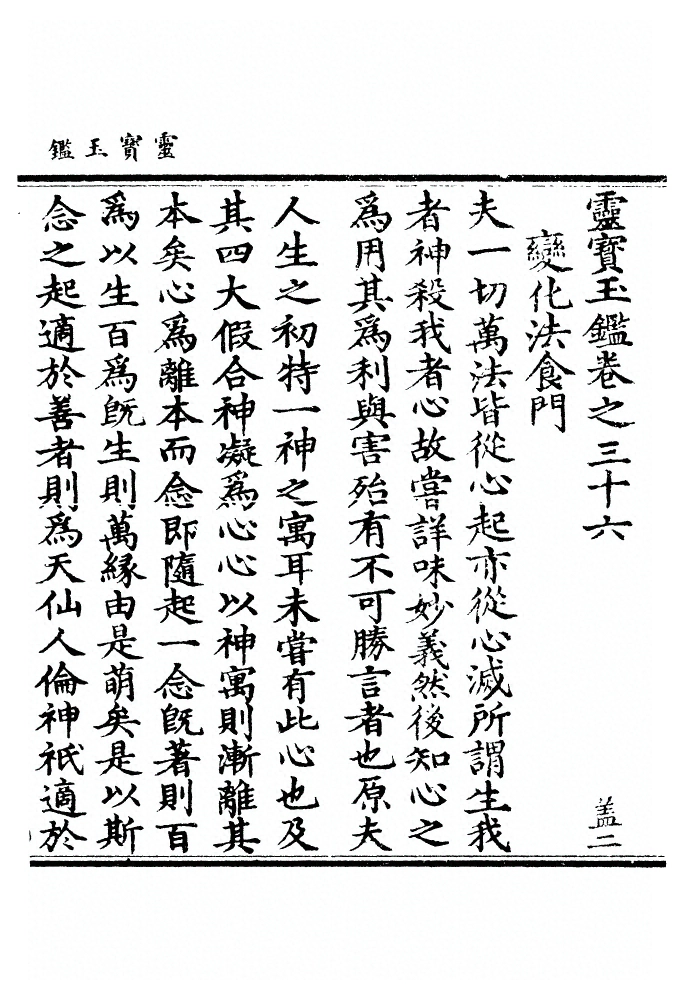 靈寶玉鑑
靈寶玉鑑卷之三十六
盖二
變化法食門
夫一切萬法皆從心起亦從心滅所謂生我
者神殺我者心故嘗詳味妙義然後知心之
爲用其爲利與害殆有不可勝言者也原夫
人生之初特一神之寓耳未嘗有此心也及
其四大假合神凝爲心心以神寓則漸離其
本矣心爲離本而念即隨起一念旣著則百
爲以生百爲旣生則萬緣由是萌矣是以斯
念之起適於善者則爲天仙人倫神祇適於